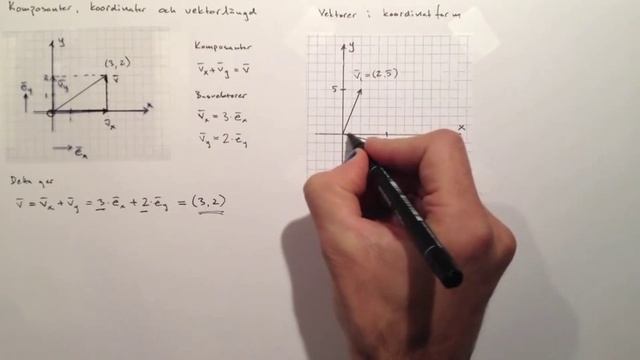 Komposanter, koordinater och vektorlängd
y
(3,2)
2
v̄
v̄y
ēy
1
x
v̄x
ēx
Komposanter
v̄x + v̄y = v̄
Basvektorer
v̄x = 3·ēx
v̄y = 2·ēy
Detta ger
v̄ = v̄x + v̄y = 3·ēx + 2·ēy = (3,2)
Vektorer i koordinatform
y
v̄1 = (2,5)
5
x